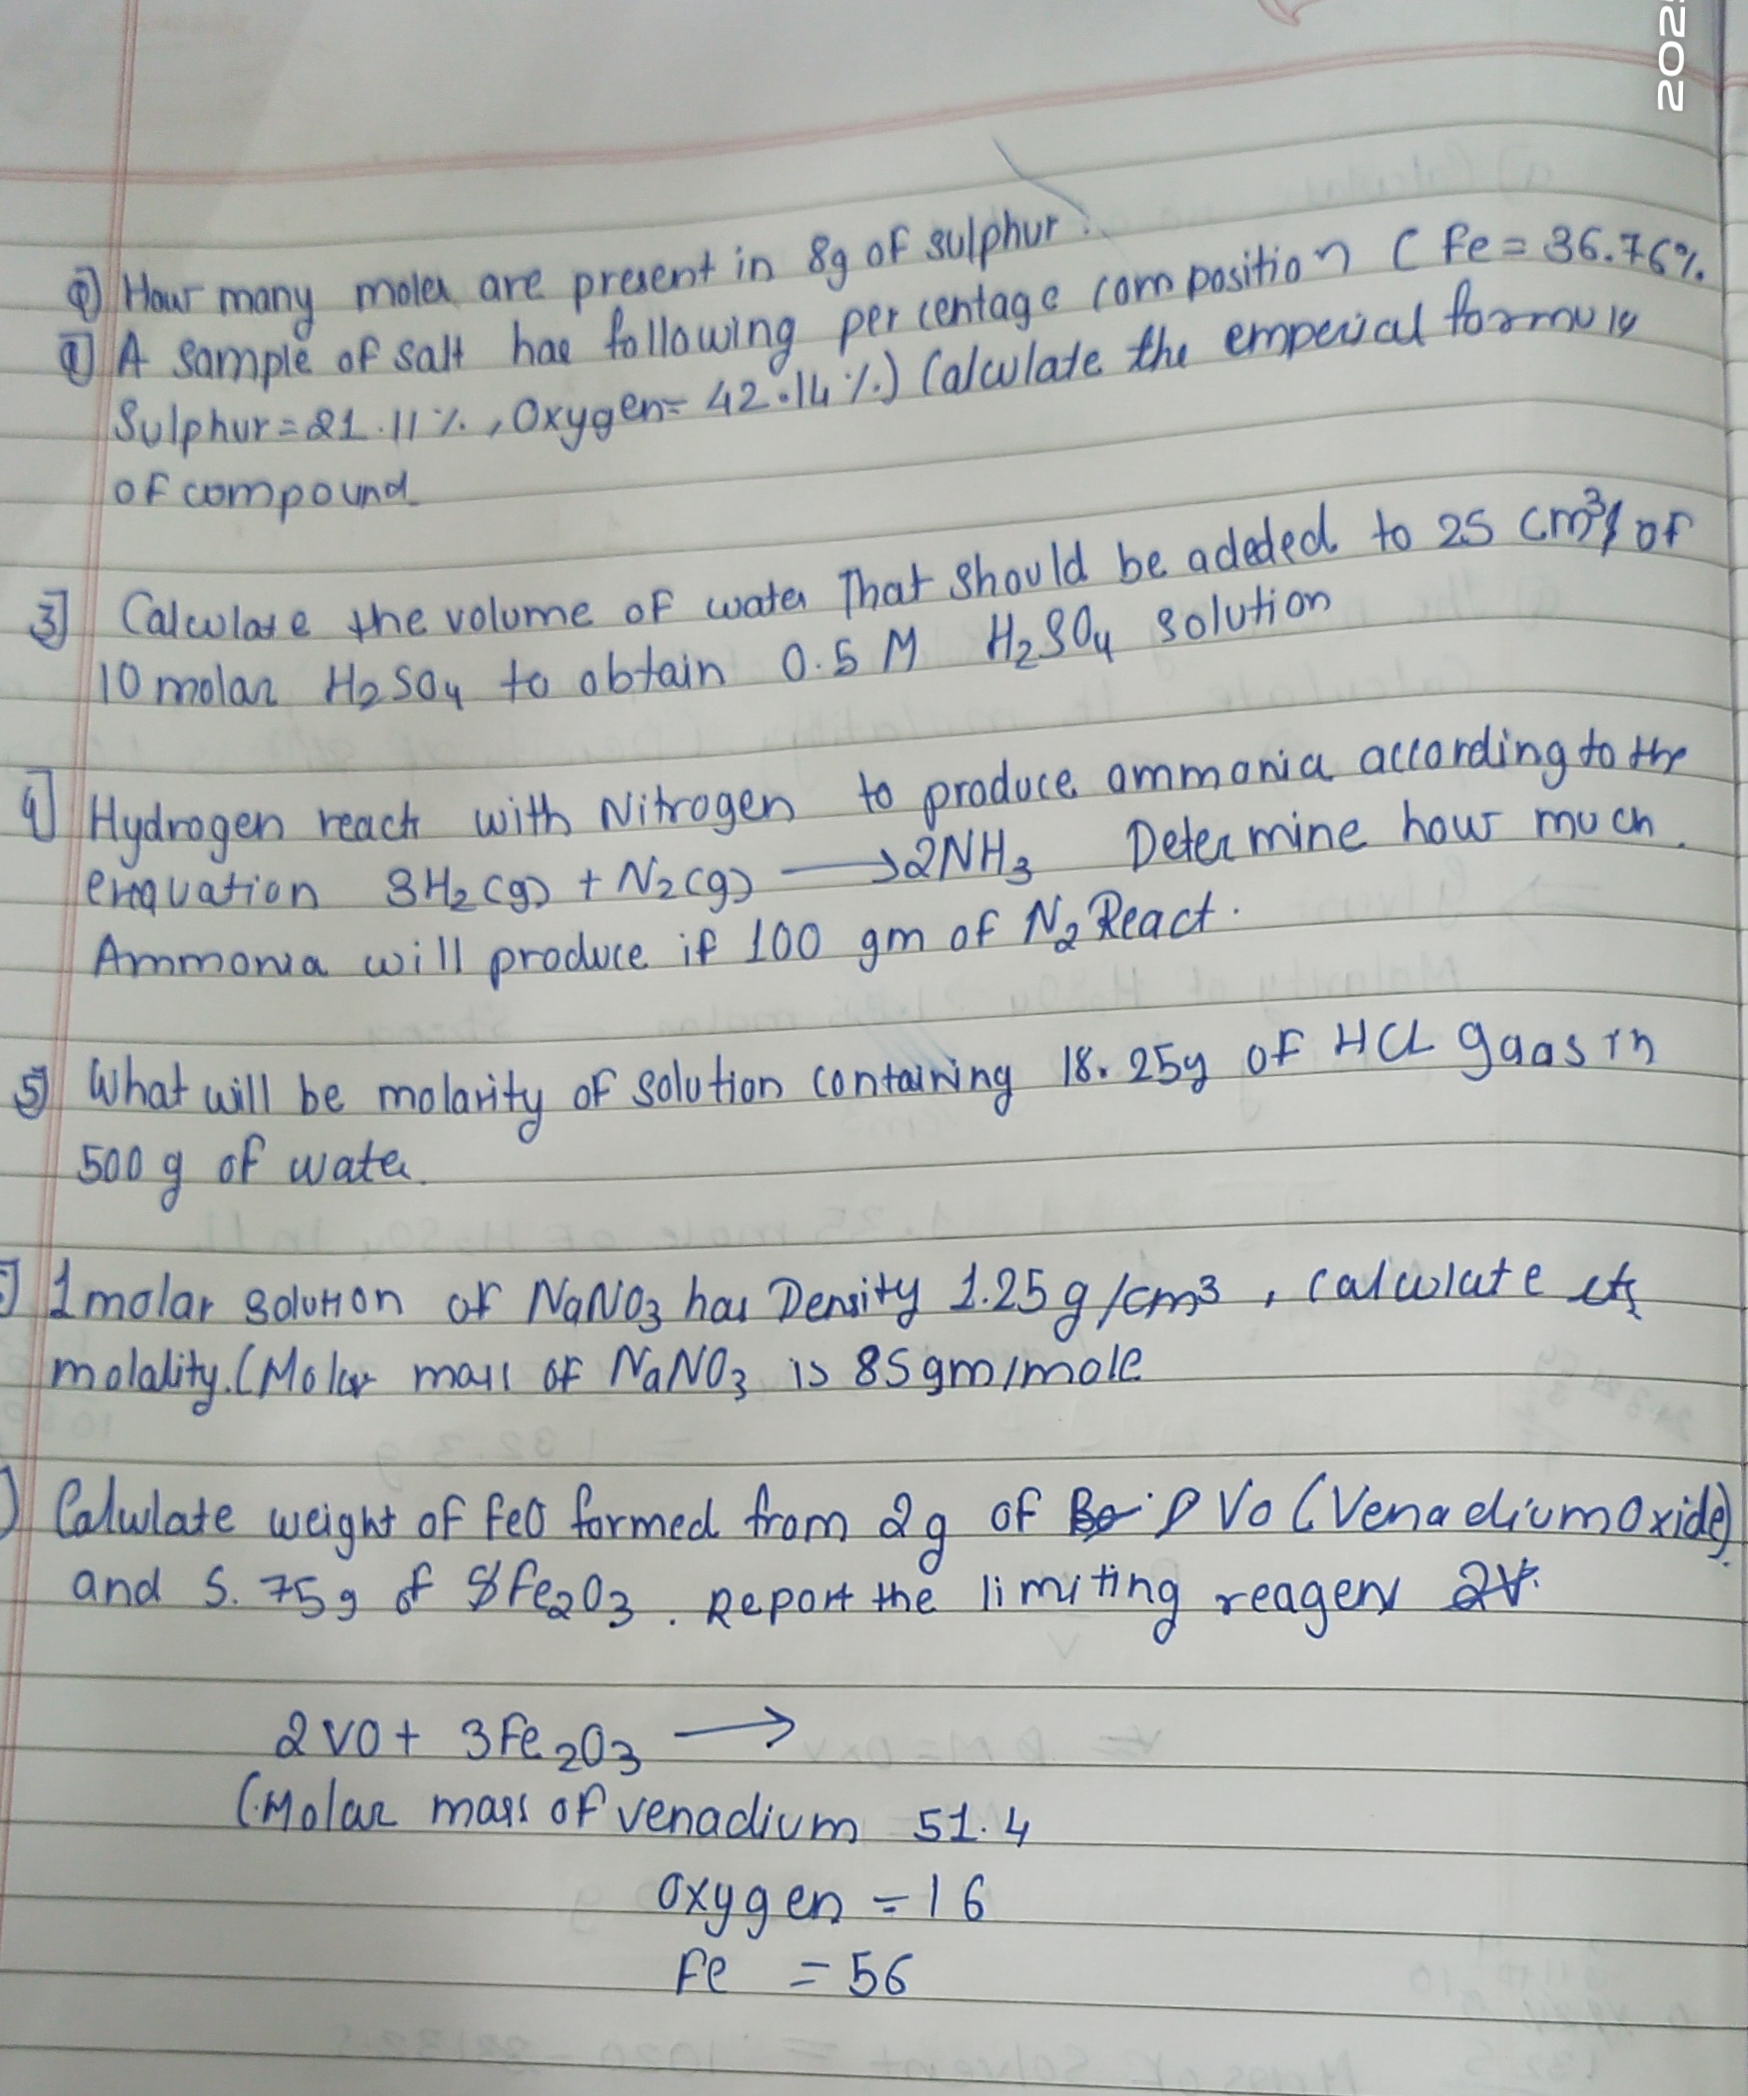 202
Q) How many moles are present in 8g of sulphur.
Q] A sample of salt has following percentage composition ( Fe = 36.76%.
Sulphur = 21.11 %. , Oxygen = 42.14 %.) Calculate the emperial formula
of compound
3] Calculate the volume of water That should be adeded to 25 cm³ of
10 molar H₂SO₄ to obtain 0.5 M H₂SO₄ solution
4] Hydrogen react with Nitrogen to produce ammonia according to the
enquation 3H₂(g) + N₂(g) ⟶ 2NH₃ Determine how much
Ammonia will produce if 100 gm of N₂ React.
5] What will be molarity of solution containing 18.25g of HCL gaas in
500 g of water.
] 1 molar solution of NaNO₃ has Density 1.25 g/cm³, calculate its
molality. (Molar mass of NaNO₃ is 85 gm/mole
) Calculate weight of feO formed from 2g of VO (Venadium Oxide)
and 5.75g of Fe₂O₃. Report the limiting reagen
2VO + 3Fe₂O₃ ⟶
(Molar mass of venadium 51.4
Oxygen = 16
Fe = 56